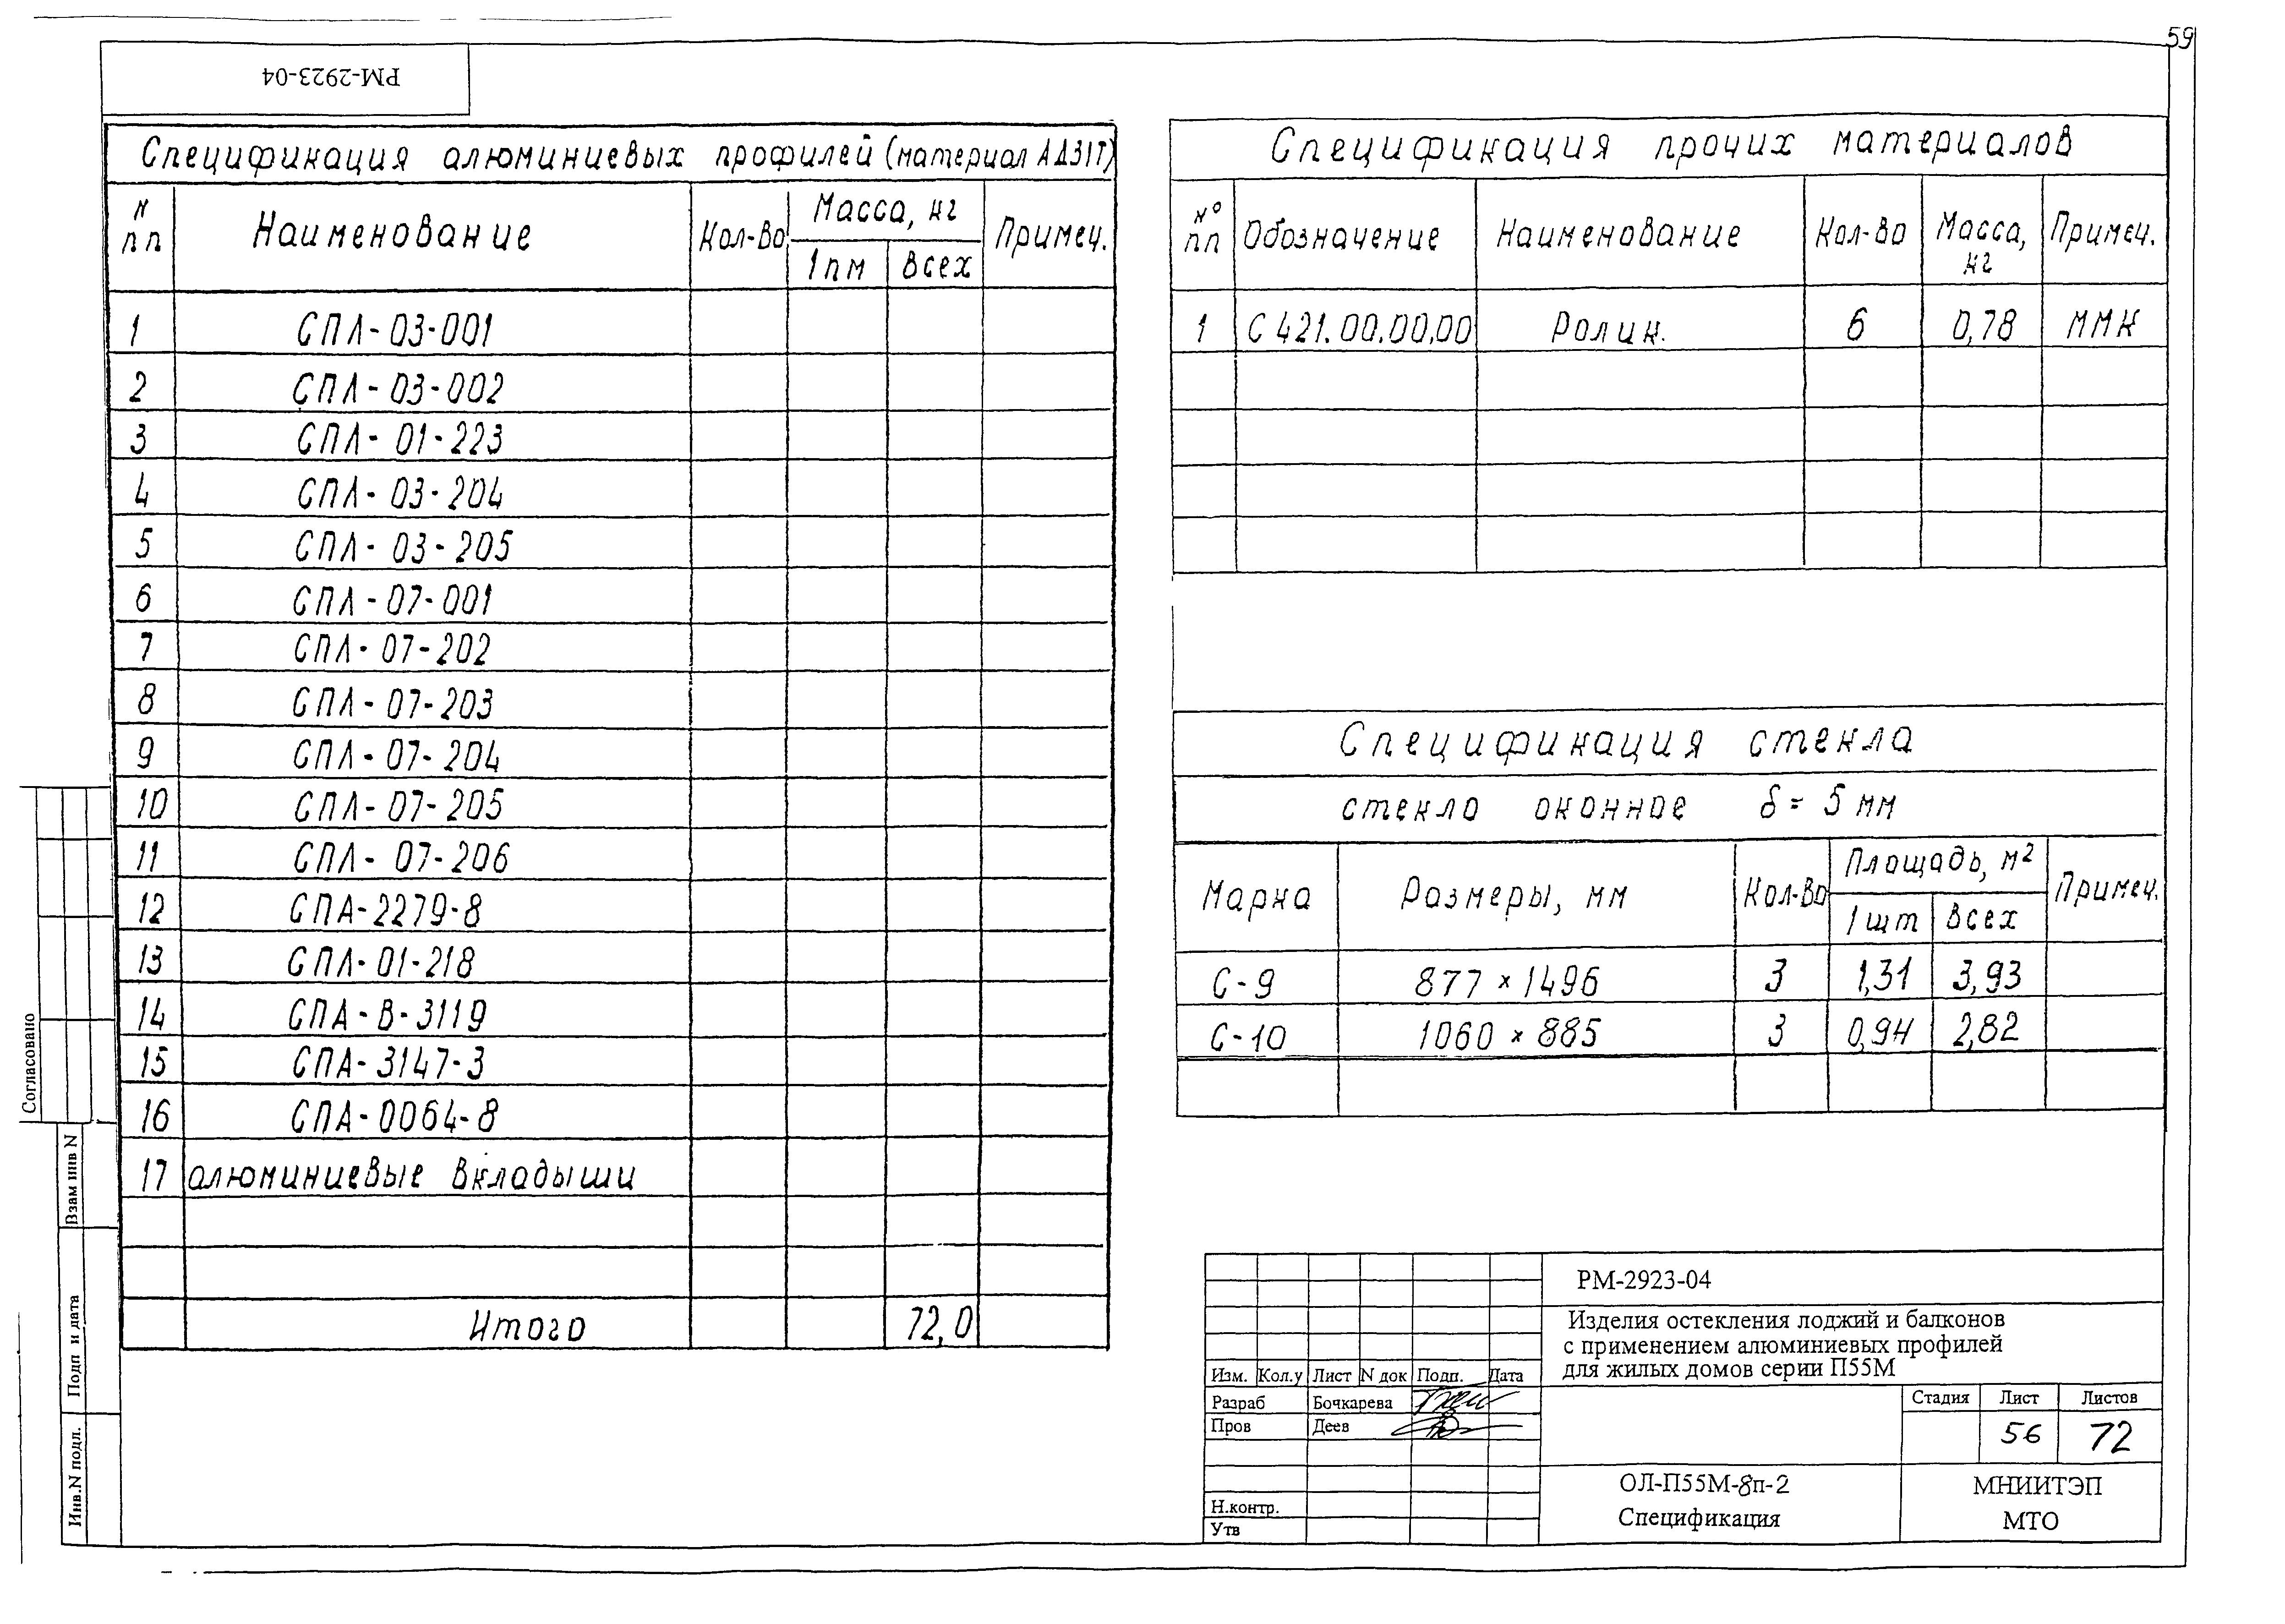 59
РМ-2923-04
Спецификация алюминиевых профилей (материал АД31Т)
N пп Наименование Кол-во Масса, кг Примеч.
1 пм Всех
1 СПЛ-03-001
2 СПЛ-03-002
3 СПЛ-01-223
4 СПЛ-03-204
5 СПЛ-03-205
6 СПЛ-07-001
7 СПЛ-07-202
8 СПЛ-07-203
9 СПЛ-07-204
10 СПЛ-07-205
11 СПЛ-07-206
12 СПА-2279-8
13 СПЛ-01-218
14 СПА-В-3119
15 СПА-3147-3
16 СПА-0064-8
17 алюминиевые вкладыши
Итого 72,0
Спецификация прочих материалов
№ пп Обозначение Наименование Кол-во Масса, кг Примеч.
1 С 421.00.00.00 Ролик. 6 0,78 ММК
Спецификация стекла
стекло оконное δ = 5 мм
Марка Размеры, мм Кол-во Площадь, м² Примеч.
1 шт Всех
С-9 877 × 1496 3 1,31 3,93
С-10 1060 × 885 3 0,94 2,82
Согласовано
Взам инв N
Подп и дата
Инв.N подл.
РМ-2923-04
Изделия остекления лоджий и балконов
с применением алюминиевых профилей
для жилых домов серии П55М
Изм. Кол.у Лист N док Подп. Дата
Разраб Бочкарева
Пров Деев
Н.контр.
Утв
Стадия Лист Листов
56 72
ОЛ-П55М-8п-2
Спецификация
МНИИТЭП
МТО